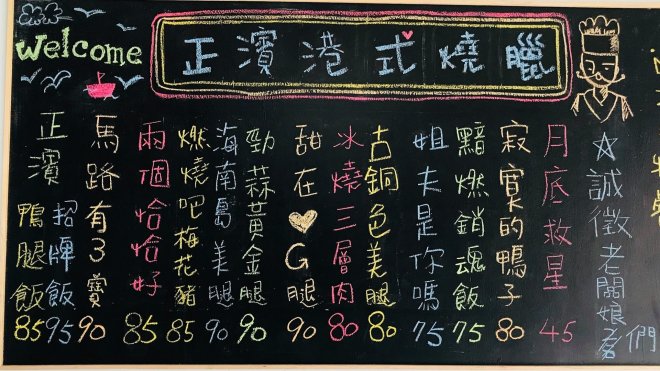 Welcome
正濱港式燒臘
☆誠徵老闆娘們
月底救星 45
寂寞的鴨子 80
黯燃銷魂飯 75
姐夫是你嗎 75
古銅色美腿 80
冰燒三層肉 80
甜在♥G腿 90
勁蒜黃金腿 90
海南島美腿 90
燃燒吧梅花豬 85
兩個恰恰好 85
馬路有3寶 90
正濱
招牌飯 95
鴨腿飯 85